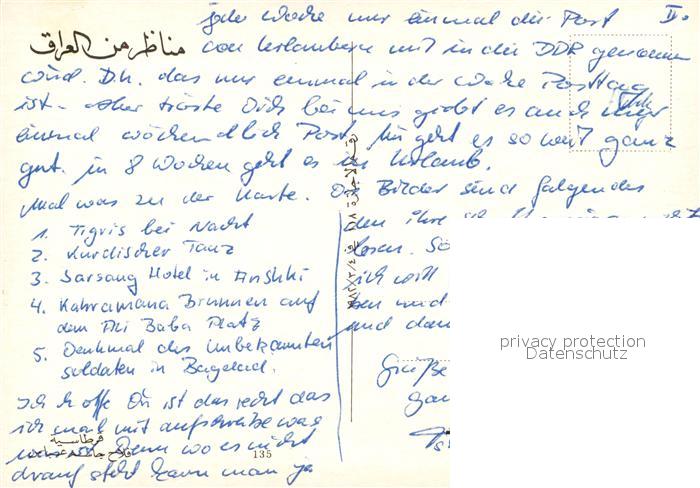 jede Woche nur einmal die Post II.
مناظر من العراق
von Urlaubern mit in die DDR genommen
wird. D.h. das nur einmal in der Woche Posttag
ist. Aber tröste Dich bei uns giebt es auch nur
einmal wöchendlich Post. Mir geht es so weit ganz
gut. in 8 Wochen geht es in Urlaub.
Mal was zu der Karte. Die Bilder sind folgendes
1. Tigris bei Nacht
2. Kurdischer Tanz
3. Sarsang Hotel in Anshki
4. Kahramana Brunnen auf
dem Ali Baba Platz
5. Denkmal des unbekannten
soldaten in Bagdad.
Ich hoffe Dir ist das recht das
ich mal mit aufschreibe was
Denn wo es nicht
drauf steht kann man ja
den ihre
lesen.
ich will
und
Grüße
135
privacy protection
Datenschutz